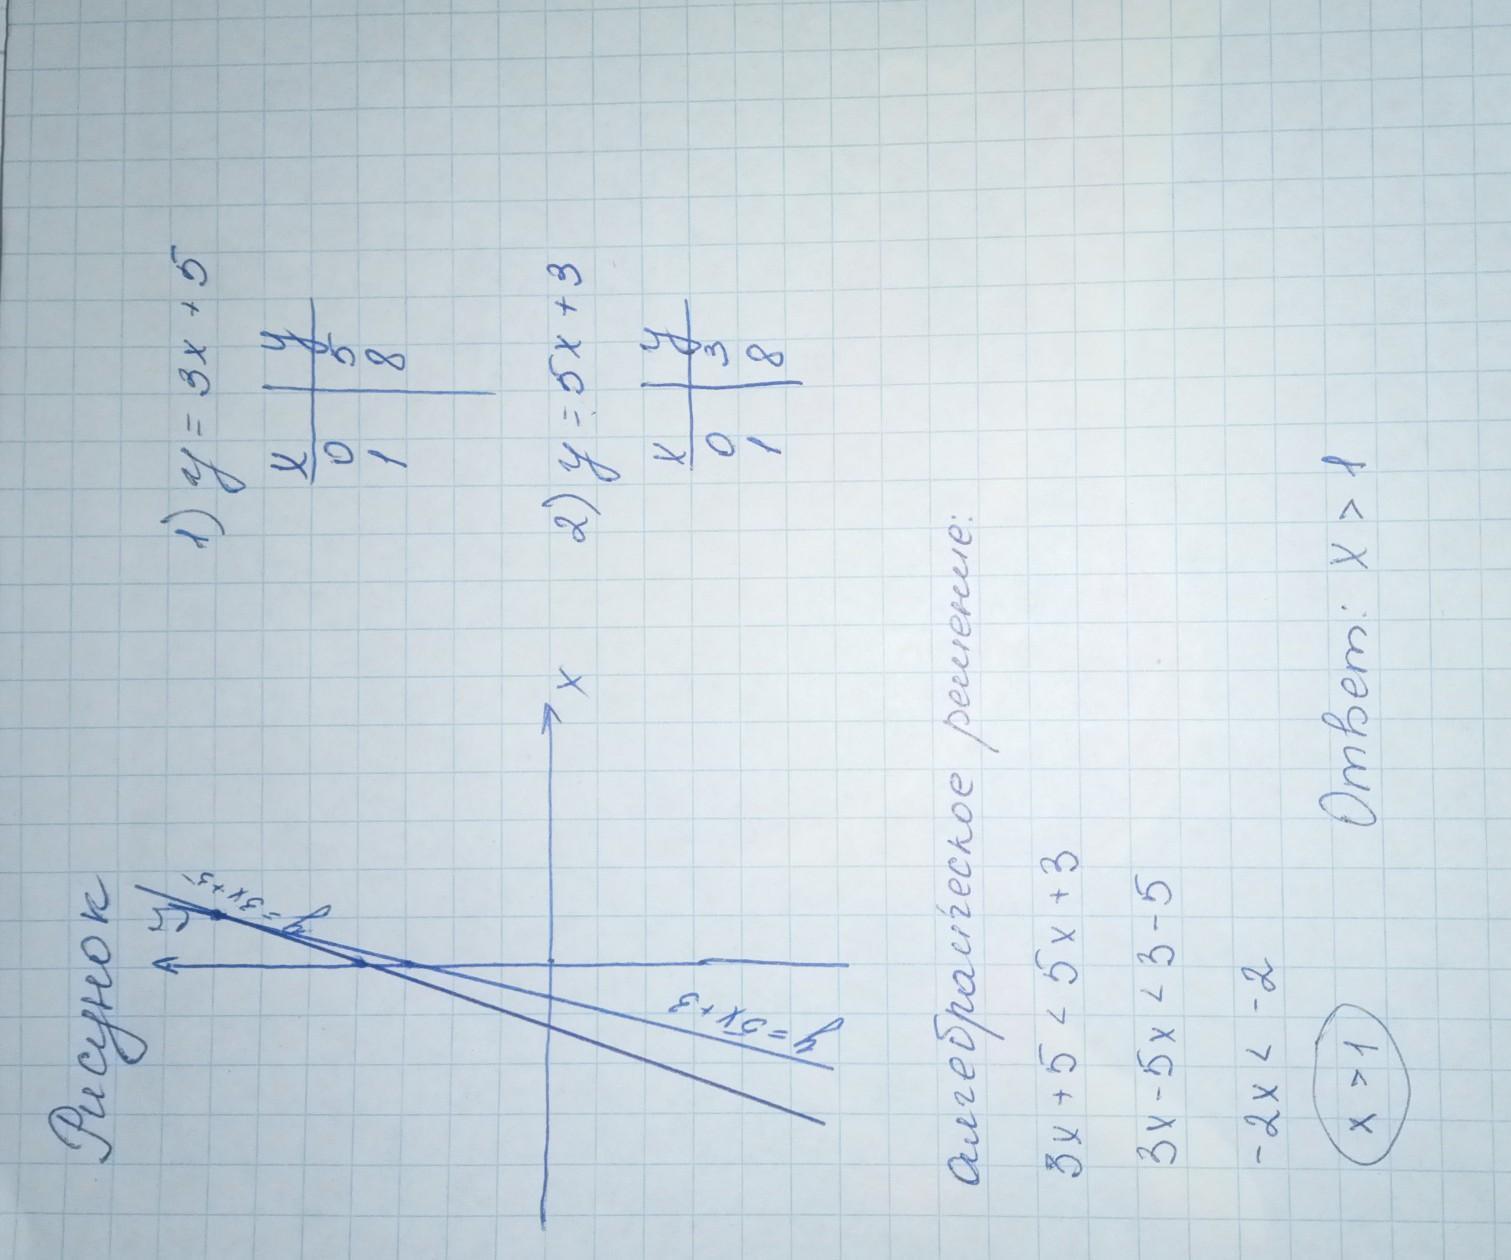 Рисунок
y
y = 3x + 5
x
y = 5x + 3
1) y = 3x + 5
x y
0 5
1 8
2) y = 5x + 3
x y
0 3
1 8
Алгебраическое решение:
3x + 5 < 5x + 3
3x - 5x < 3 - 5
-2x < -2
x > 1
Ответ: x > 1